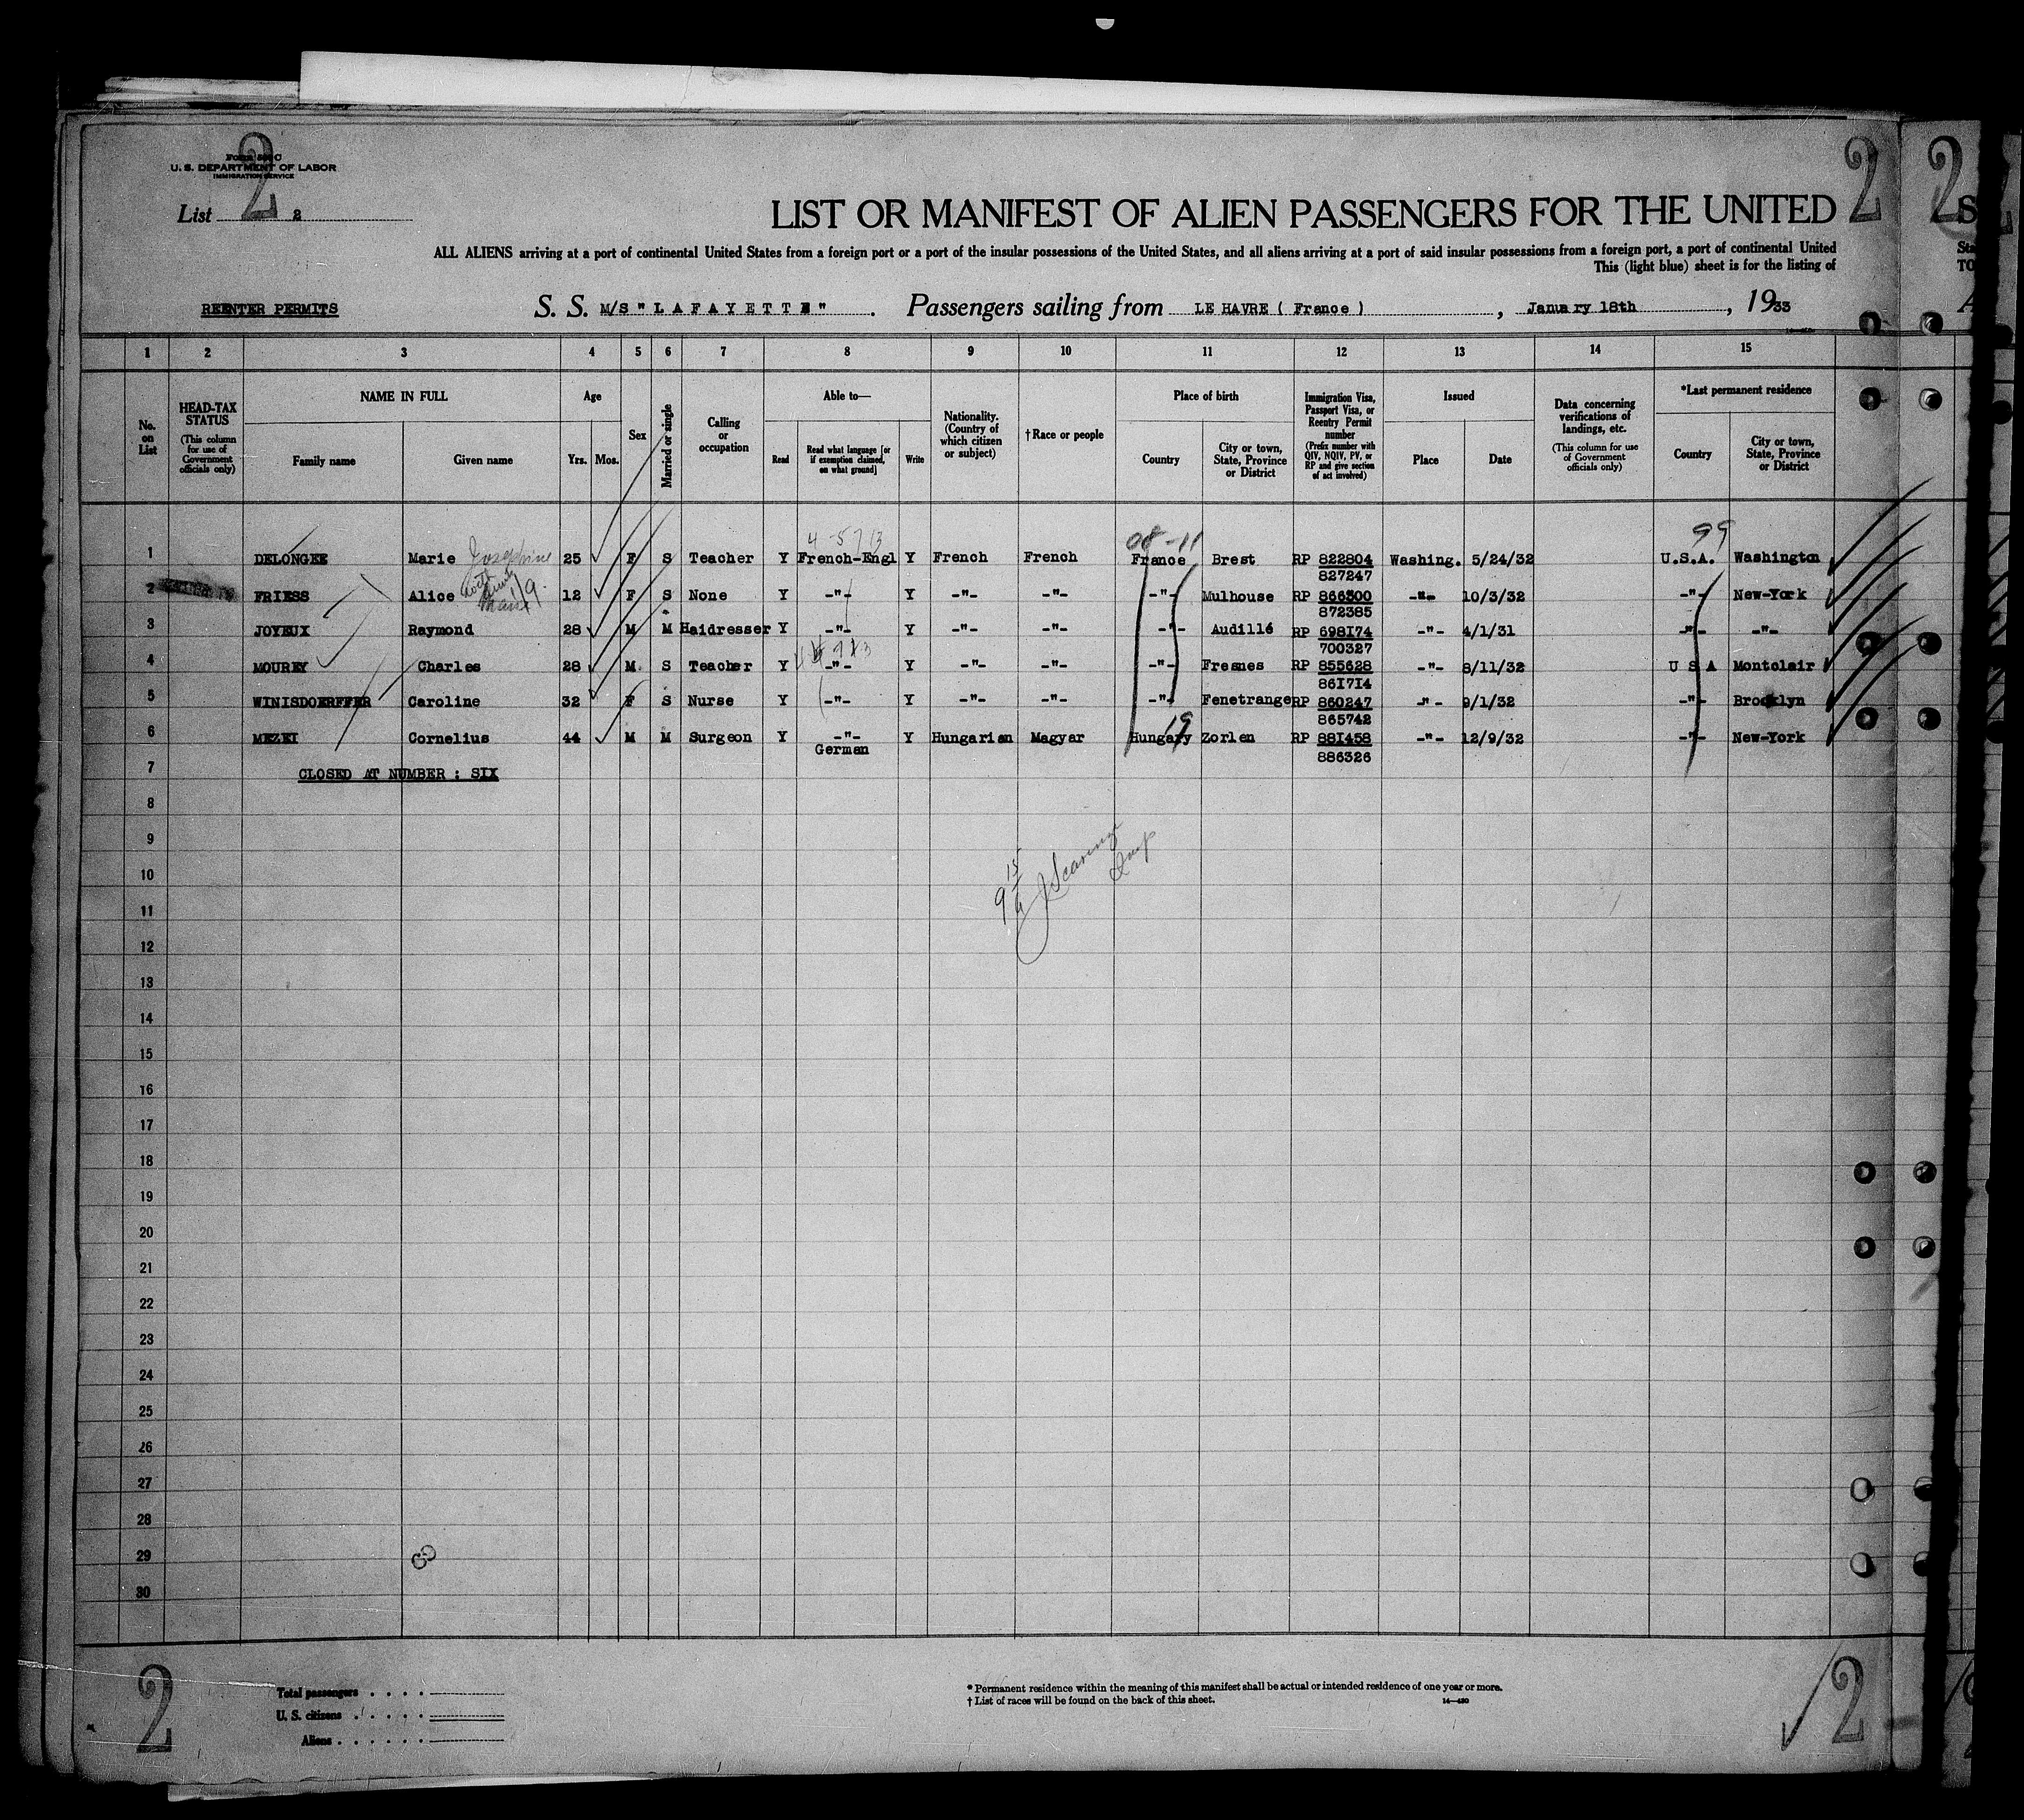 2
2
2
Form 500 C
U. S. DEPARTMENT OF LABOR
IMMIGRATION SERVICE
List 2
LIST OR MANIFEST OF ALIEN PASSENGERS FOR THE UNITED
S
ALL ALIENS arriving at a port of continental United States from a foreign port or a port of the insular possessions of the United States, and all aliens arriving at a port of said insular possessions from a foreign port, a port of continental United
Sta
This (light blue) sheet is for the listing of
TO
REENTER PERMITS S. S. M/S "LAFAYETTE". Passengers sailing from LE HAVRE ( France ), January 18th, 1933
1 2 3 4 5 6 7 8 9 10 11 12 13 14 15
No. on List
HEAD-TAX STATUS (This column for use of Government officials only)
NAME IN FULL
Family name Given name
Age
Yrs. Mos.
Sex
Married or single
Calling or occupation
Able to—
Read
Read what language [or if exemption claimed, on what ground]
Write
Nationality. (Country of which citizen or subject)
†Race or people
Place of birth
Country
City or town, State, Province or District
Immigration Visa, Passport Visa, or Reentry Permit number (Prefix number with QIV, NQIV, PV, or RP and give section of act involved)
Issued
Place Date
Data concerning verifications of landings, etc. (This column for use of Government officials only)
*Last permanent residence
Country
City or town, State, Province or District
99
1 DELONGEE Marie Josephine 25 F S Teacher Y French-Engl Y French French France Brest RP 822804 Washing. 5/24/32 U.S.A. Washington
827247
2 FRIESS Alice 12 F S None Y -"- Y -"- -"- -"- Mulhouse RP 866500 -"- 10/3/32 -"- New-York
872385
3 JOYEUX Raymond 28 M M Haidresser Y -"- Y -"- -"- -"- Audillé RP 698174 -"- 4/1/31 -"- -"-
700327
4 MOUREY Charles 28 M. S Teacher Y -"- Y -"- -"- -"- Fresnes RP 855628 -"- 8/11/32 U S A Montclair
861714
5 WINISDOERFFER Caroline 32 F S Nurse Y -"- Y -"- -"- -"- Fenetrange RP 860247 -"- 9/1/32 -"- Brooklyn
865742
19
6 MEZEI Cornelius 44 M M Surgeon Y -"- Y Hungarian Magyar Hungary Zorlen RP 881458 -"- 12/9/32 -"- New-York
German
886326
7 CLOSED AT NUMBER : SIX
8
9
10
11
12
13
14
15
16
17
18
19
20
21
22
23
24
25
26
27
28
29
30
Total passengers
U. S. citizens
Aliens
* Permanent residence within the meaning of this manifest shall be actual or intended residence of one year or more.
† List of races will be found on the back of this sheet.
14—430
2
2